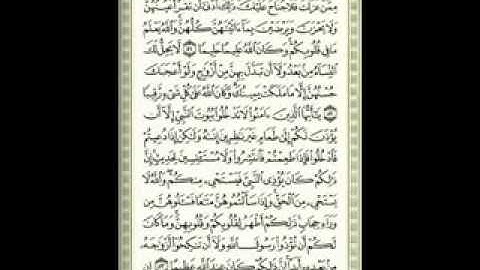 مِمَّنْ عَزَلْتَ فَلَا جُنَاحَ عَلَيْكَ ذَٰلِكَ أَدْنَىٰ أَن تَقَرَّ أَعْيُنُهُنَّ
وَلَا يَحْزَنَّ وَيَرْضَيْنَ بِمَا ءَاتَيْتَهُنَّ كُلُّهُنَّ وَٱللَّهُ يَعْلَمُ
مَا فِى قُلُوبِكُمْ وَكَانَ ٱللَّهُ عَلِيمًا حَلِيمًا ۝٥١ لَّا يَحِلُّ لَكَ
ٱلنِّسَآءُ مِنۢ بَعْدُ وَلَآ أَن تَبَدَّلَ بِهِنَّ مِنْ أَزْوَٰجٍ وَلَوْ أَعْجَبَكَ
حُسْنُهُنَّ إِلَّا مَا مَلَكَتْ يَمِينُكَ وَكَانَ ٱللَّهُ عَلَىٰ كُلِّ شَىْءٍ رَّقِيبًا
۝٥٢ يَٰٓأَيُّهَا ٱلَّذِينَ ءَامَنُوا۟ لَا تَدْخُلُوا۟ بُيُوتَ ٱلنَّبِىِّ إِلَّآ أَن
يُؤْذَنَ لَكُمْ إِلَىٰ طَعَامٍ غَيْرَ نَٰظِرِينَ إِنَىٰهُ وَلَٰكِنْ إِذَا دُعِيتُمْ
فَٱدْخُلُوا۟ فَإِذَا طَعِمْتُمْ فَٱنتَشِرُوا۟ وَلَا مُسْتَـْٔنِسِينَ لِحَدِيثٍ إِنَّ
ذَٰلِكُمْ كَانَ يُؤْذِى ٱلنَّبِىَّ فَيَسْتَحْىِۦ مِنكُمْ وَٱللَّهُ لَا
يَسْتَحْىِۦ مِنَ ٱلْحَقِّ وَإِذَا سَأَلْتُمُوهُنَّ مَتَٰعًا فَسْـَٔلُوهُنَّ مِن
وَرَآءِ حِجَابٍ ذَٰلِكُمْ أَطْهَرُ لِقُلُوبِكُمْ وَقُلُوبِهِنَّ وَمَا كَانَ
لَكُمْ أَن تُؤْذُوا۟ رَسُولَ ٱللَّهِ وَلَآ أَن تَنكِحُوٓا۟ أَزْوَٰجَهُۥ
مِنۢ بَعْدِهِۦٓ أَبَدًا إِنَّ ذَٰلِكُمْ كَانَ عِندَ ٱللَّهِ عَظِيمًا ۝٥٣ إِن